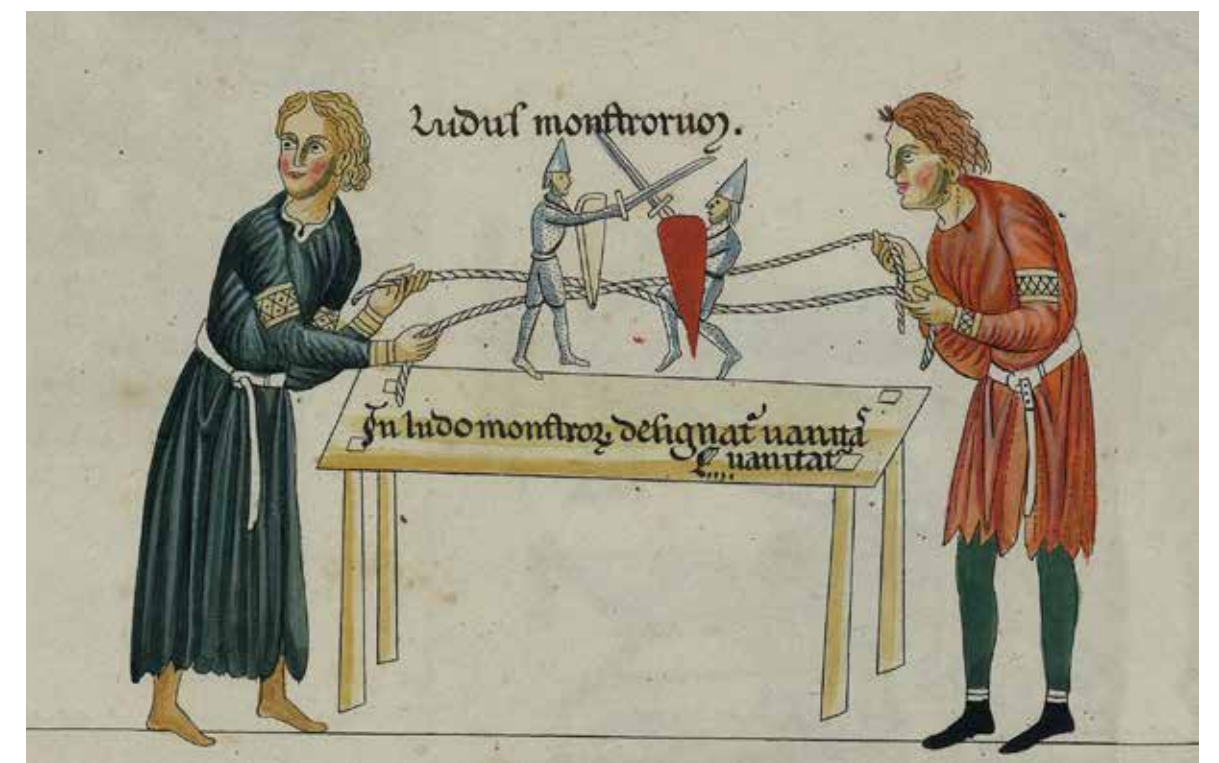 Luduſ monſtroruꝫ.
In ludo monſtroꝝ deſignat᷑ uanita
uanitat